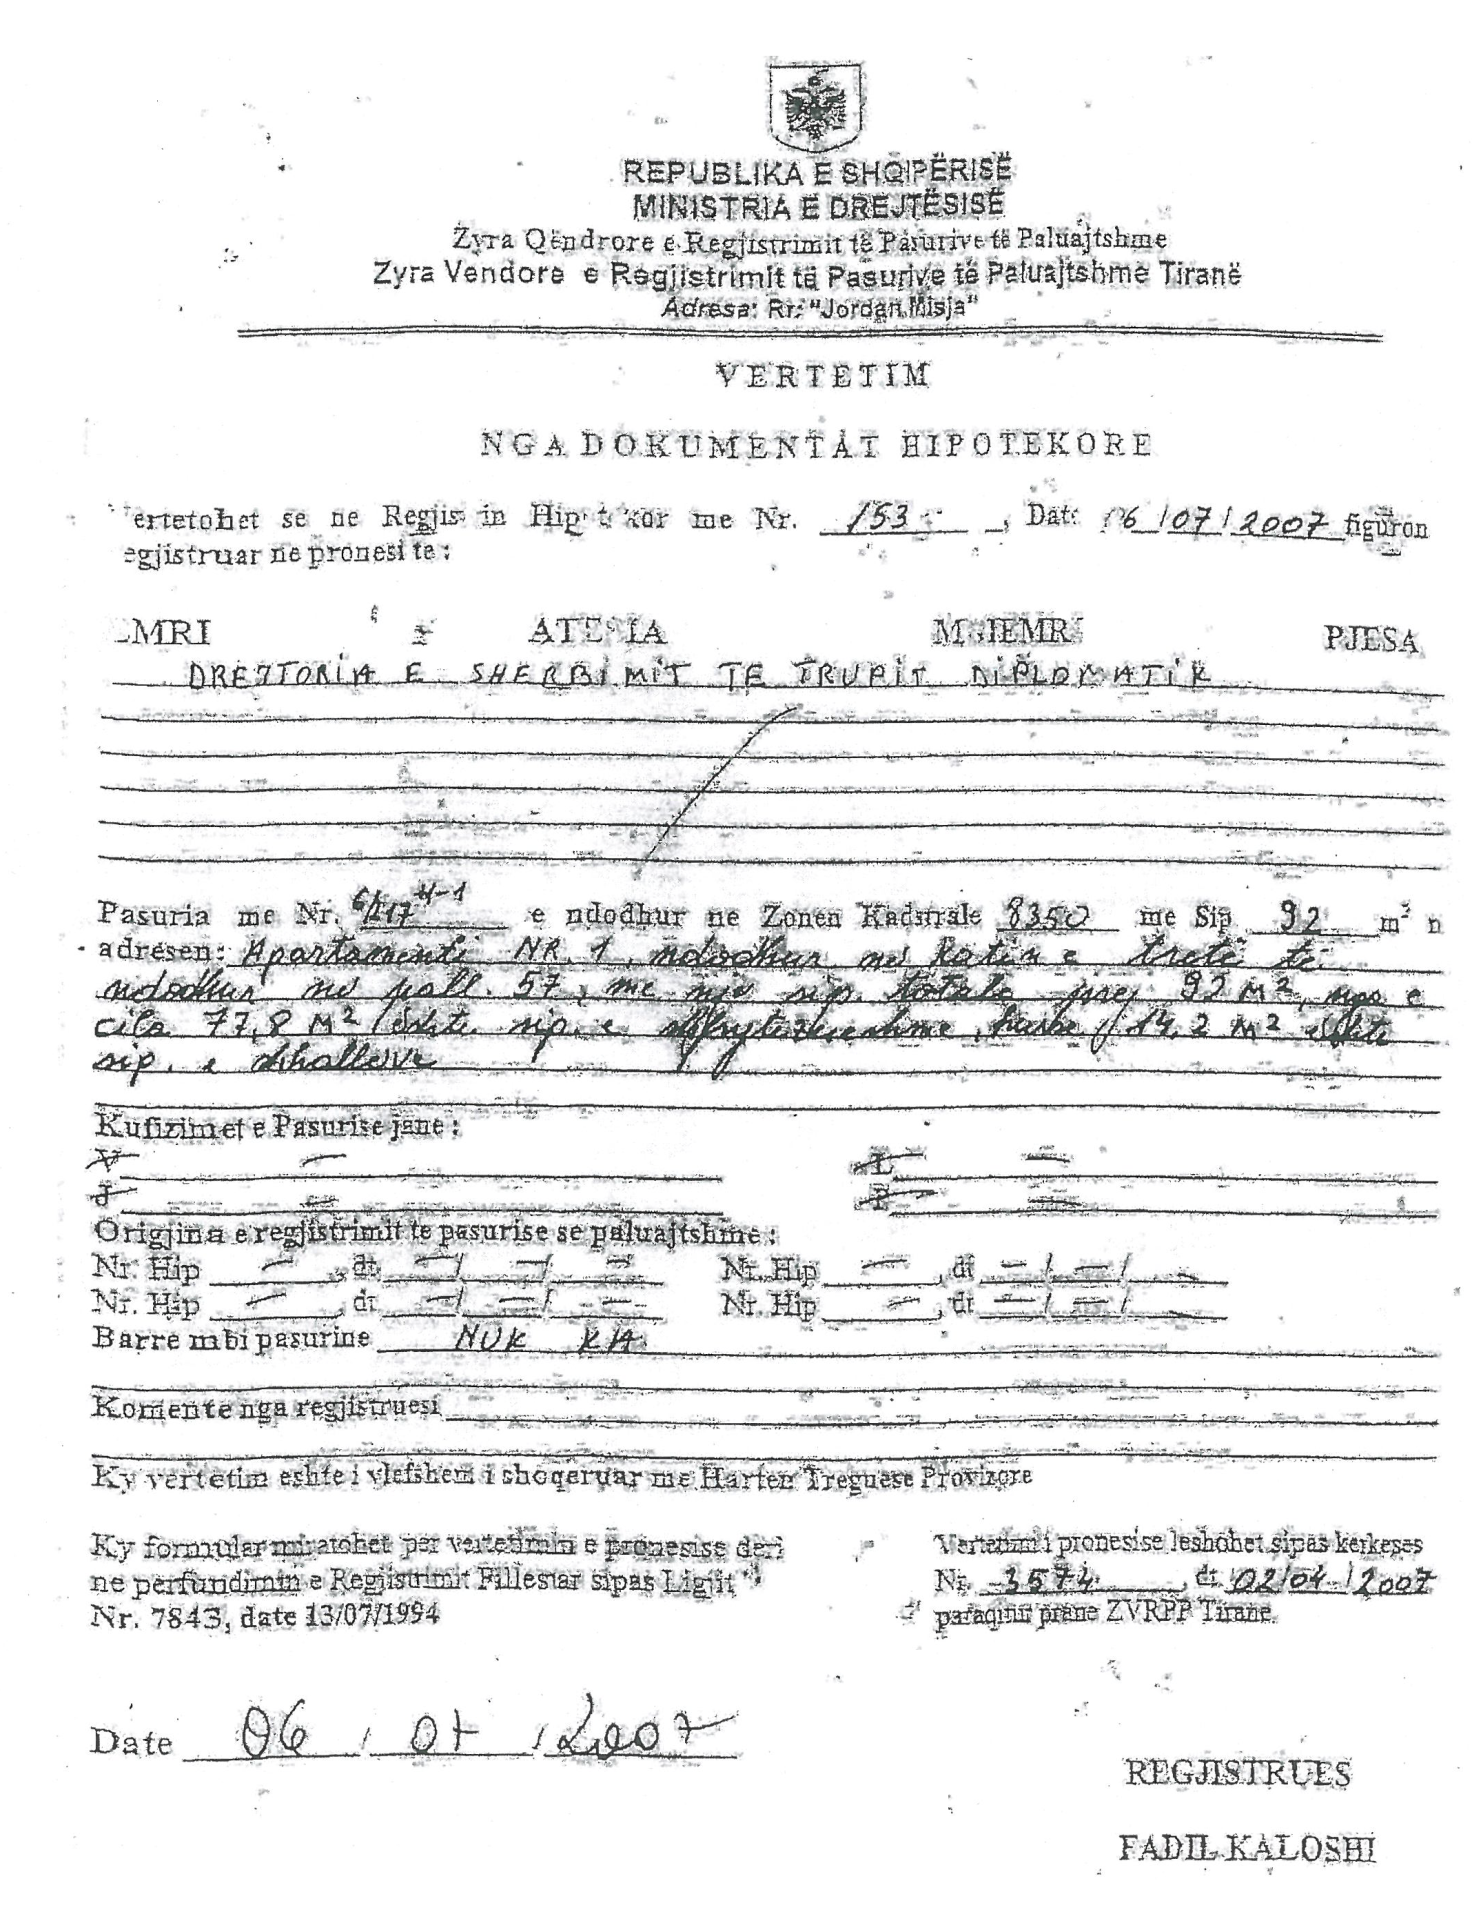 REPUBLIKA E SHQIPËRISË
MINISTRIA E DREJTËSISË
Zyra Qëndrore e Regjistrimit të Pasurive të Paluajtshme
Zyra Vendore e Regjistrimit të Pasurive të Paluajtshme Tiranë
Adresa: Rr: "Jordan Misja"
VERTETIM
NGA DOKUMENTAT HIPOTEKORE
ertetohet se ne Regjis in Hip t kor me Nr. 153 , Dat: 06/07/2007 figuron
egjistruar ne pronesi te :
MRI ATESIA MBIEMRI PJESA
DREJTORIA E SHERBIMIT TE TRUPIT DIPLOMATIK
Pasuria me Nr. e ndodhur ne Zonen Kadstrale 8350 me Sip 92 m² n
adresen: Apartamenti NR. 1, ndodhur ne katin e tretë të
ndodhur ne pall. 57, me nje sip. totale prej 92 M², nga e
cila 77,8 M² është sip. e shfrytezueshme, kurse 14,2 M² është
sip. e shkalleve
Kufizimet e Pasurise jane :
V — L —
J — P —
Origjina e regjistrimit te pasurise se paluajtshme :
Nr. Hip — , dt — / — / — Nr. Hip — , dt — / — / —
Nr. Hip — , dt — / — / — Nr. Hip — , dt — / — /
Barre mbi pasurine NUK KA
Komente nga regjistruesi
Ky vertetim eshte i vlefshem i shoqeruar me Harten Treguese Provizore
Ky formular miratohet per vertetimin e pronesise deri
ne perfundimin e Regjistrimit Fillestar sipas Ligjit
Nr. 7843, date 13/07/1994
Vertetimi i pronesise leshohet sipas kerkeses
Nr. 3574 , dt 02/04/2007
paraqitur prane ZVRPP Tirane.
Date 06 / 07 / 2007
REGJISTRUES
FADIL KALOSHI